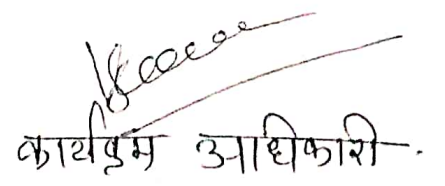 कार्यक्रम अधिकारी.